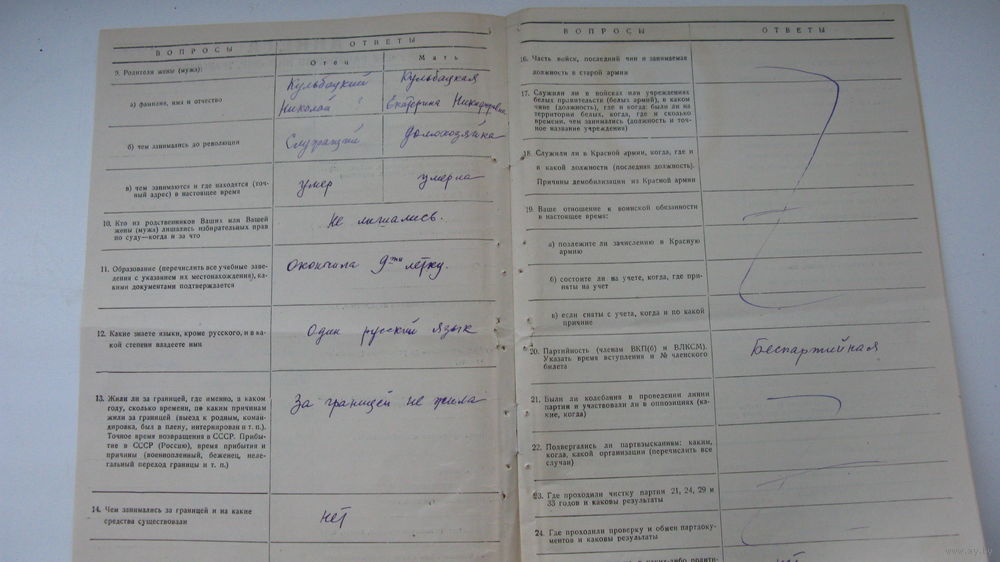 ВОПРОСЫ
ОТВЕТЫ
Отец
Мать
9. Родители жены (мужа):
а) фамилия, имя и отчество
Кульбацкий
Николай
Кульбацкая
Екатерина Никифоровна
б) чем занимались до революции
Служащий
домохозяйка
в) чем занимаются и где находятся (точ-
ный адрес) в настоящее время
умер
умерла
10. Кто из родственников Ваших или Вашей
жены (мужа) лишались избирательных прав
по суду—когда и за что
Не лишались.
11. Образование (перечислить все учебные заве-
дения с указанием их местонахождения), ка-
кими документами подтверждается
Окончила 9ти летку.
12. Какие знаете языки, кроме русского, и в ка-
кой степени владеете ими
Один русский язык
13. Жили ли за границей, где именно, в каком
году, сколько времени, по каким причинам
жили за границей (выезд к родным, коман-
дировка, был в плену, интернирован и т. п.).
Точное время возвращения в СССР. Прибы-
тие в СССР (Россию), время прибытия и
причины (военнопленный, беженец, неле-
гальный переход границы и т. п.)
За границей не жила
14. Чем занимались за границей и на какие
средства существовали
нет
ВОПРОСЫ
ОТВЕТЫ
16. Часть войск, последний чин и занимаемая
должность в старой армии
17. Служили ли в войсках или учреждениях
белых правительств (белых армий), в каком
чине (должность), где и когда: были ли на
территории белых, когда, где и сколько
времени, чем занимались (должность и точ-
ное название учреждения)
18. Служили ли в Красной армии, когда, где и
в какой должности (последняя должность).
Причины демобилизации из Красной армии
19. Ваше отношение к воинской обязанности
в настоящее время:
а) подлежите ли зачислению в Красную
армию
б) состоите ли на учете, когда, где при-
няты на учет
в) если сняты с учета, когда и по какой
причине
20. Партийность (членам ВКП(б) и ВЛКСМ).
Указать время вступления и № членского
билета
Беспартийная
21. Были ли колебания в проведении линии
партии и участвовали ли в оппозициях (ка-
кие, когда)
22. Подвергались ли партвзысканиям: каким,
когда, какой организации (перечислить все
случаи)
23. Где проходили чистку партии 21, 24, 29 и
33 годов и каковы результаты
24. Где проходили проверку и обмен партдоку-
ментов и каковы результаты
нет
www.ay.by